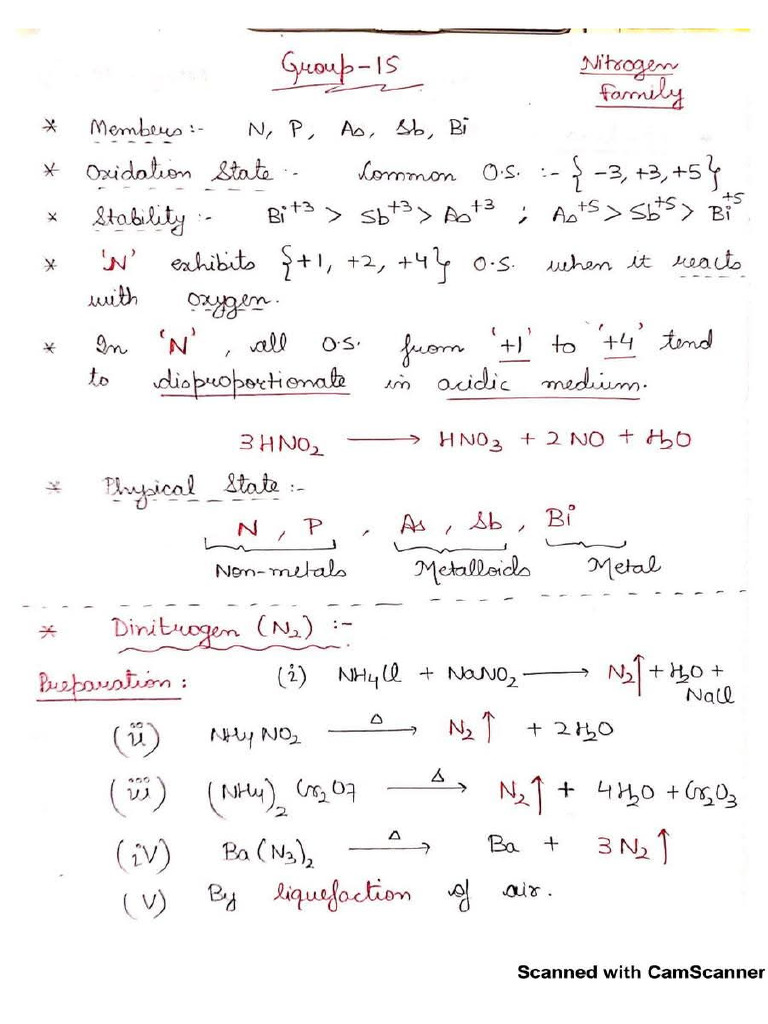 Group-15
Nitrogen
Family
* Members:- N, P, As, Sb, Bi
* Oxidation State :- Common O.S. :- { -3, +3, +5}
* Stability :- Bi⁺³ > Sb⁺³ > As⁺³ ; As⁺⁵ > Sb⁺⁵ > Bi⁺⁵
* 'N' exhibits {+1, +2, +4} O.S. when it reacts
with oxygen.
* In 'N', all O.S. from '+1' to '+4' tend
to disproportionate in acidic medium.
3HNO₂ → HNO₃ + 2NO + H₂O
* Physical State :-
N, P, As, Sb, Bi
Non-metals Metalloids Metal
* Dinitrogen (N₂) :-
Preparation: (i) NH₄Cl + NaNO₂ → N₂↑ + H₂O +
NaCl
(ii) NH₄NO₂ —Δ→ N₂↑ + 2H₂O
(iii) (NH₄)₂Cr₂O₇ —Δ→ N₂↑ + 4H₂O + Cr₂O₃
(iv) Ba(N₃)₂ —Δ→ Ba + 3N₂↑
(v) By liquefaction of air.
Scanned with CamScanner